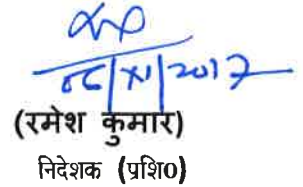 08/XI/2017
(रमेश कुमार)
निदेशक (प्रशि0)